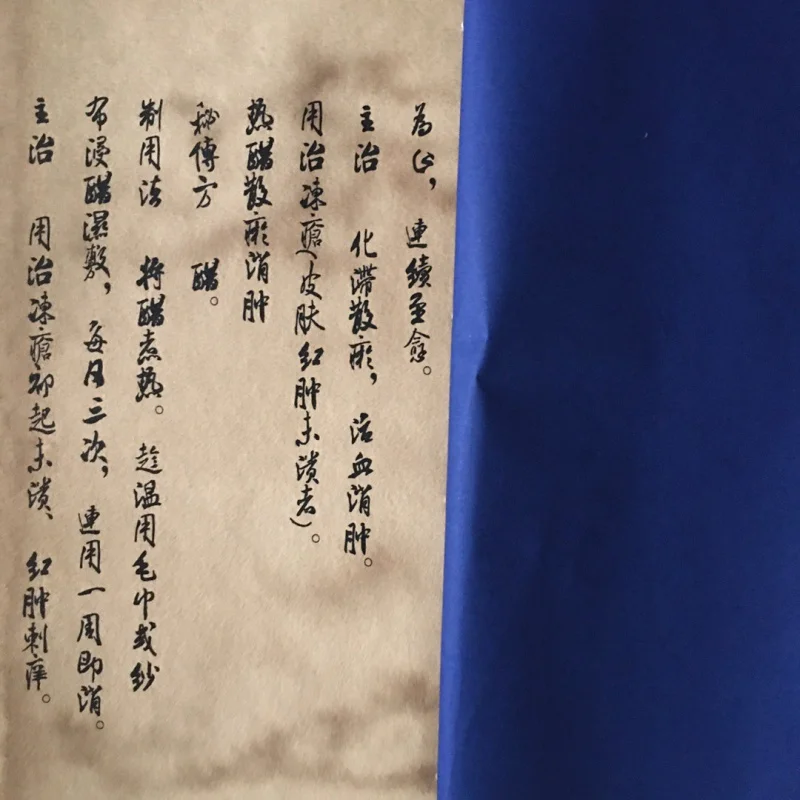 为止，連續至愈。
主治　化滯散瘀，活血消肿。
用治凍瘡（皮肤红肿未潰者）。
熱醋散瘀消肿
秘傳方　醋。
制用法　将醋煮熱。趁温用毛巾或紗
布浸醋濕敷，每日三次，連用一周即消。
主治　用治凍瘡初起未潰、红肿刺痒。